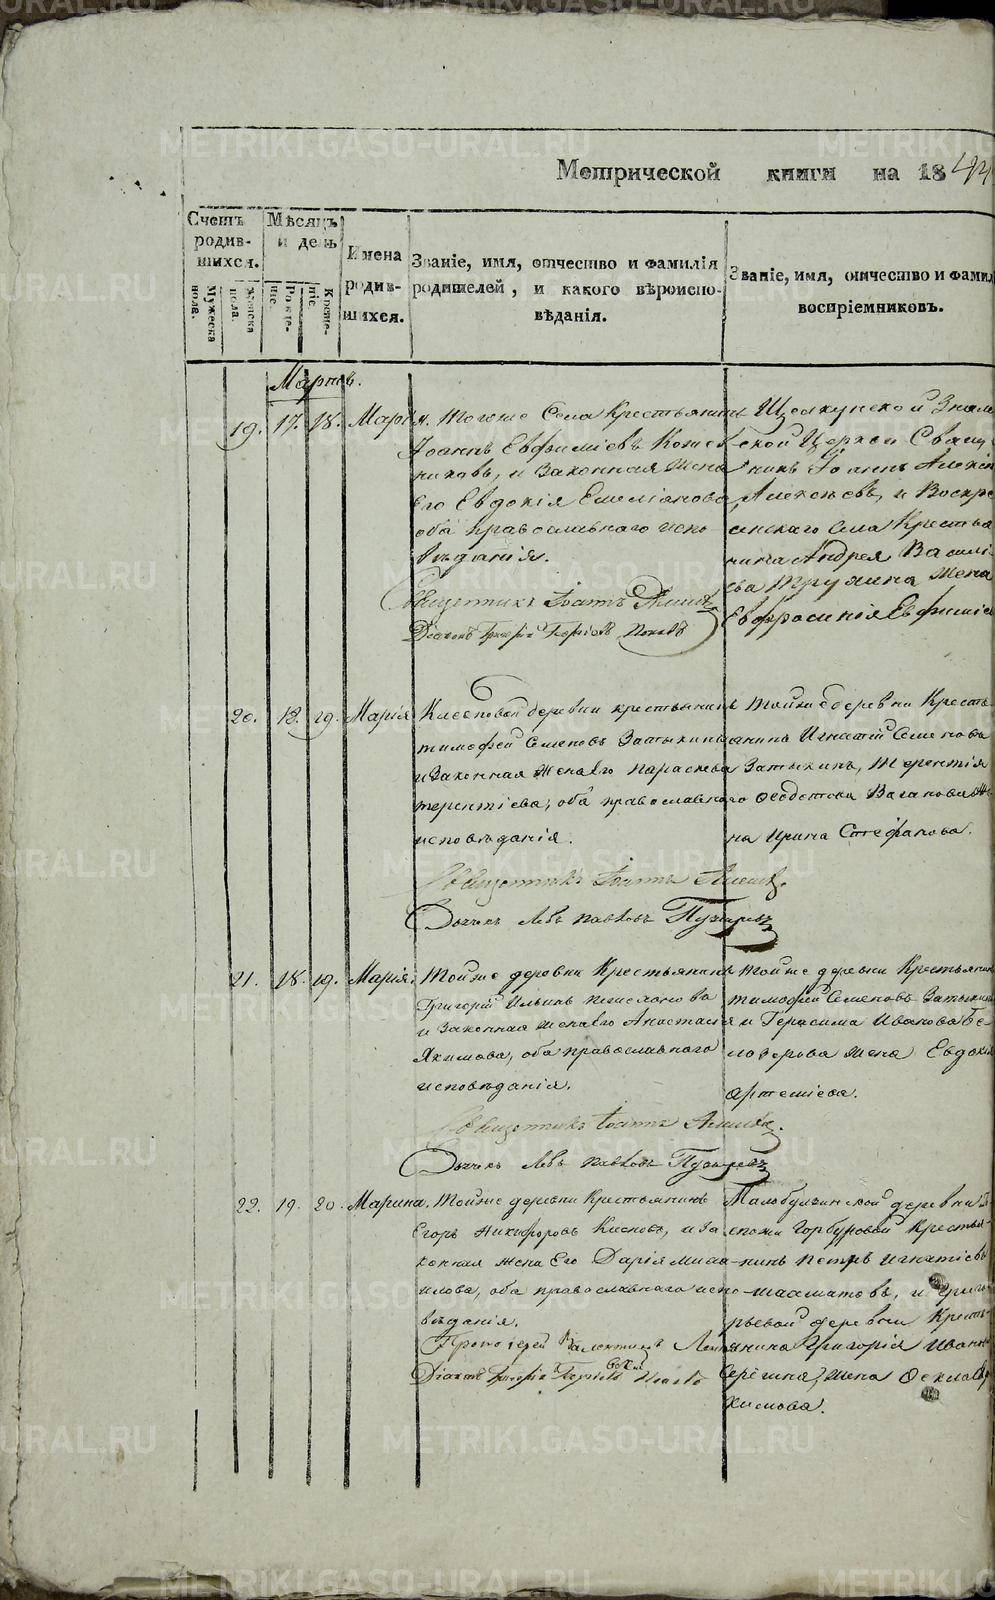 Метрической книги на 1844
Счетъ родив-шихся.
Мужеска пола.
Женска пола.
Мѣсяцъ и день
Рожденіе.
Креще-ніе.
Имена родив-шихся.
Званіе, имя, отчество и фамилія родителей, и какого вѣроиспо-вѣданія.
Званіе, имя, отчество и фамил
воспріемниковъ.
Мартъ.
19. 17. 18. Марія. Тогоже Села Крестьянинъ
Іоаннъ Евфиміевъ
никовъ, и Законная Жена
Его Евдокія Емеліанова
оба православнаго испо
вѣданія.
Священникъ Іоаннъ
Діаконъ Григорій Георгіевъ Поповъ
Щелкунской Знаме
ской Церкви Свящ
никъ Іоаннъ Алексѣ
Алексѣевъ, и Воскре
сенскаго Села Крестья
нина Андрея Василі
ева Трулина Жена
Евфросинія Евфиміе
20. 18. 19. Марія Клеоповой деревни крестьянинъ
Тимофей Семеновъ Затыкинъ
и Законная Жена Его Параскева
Терентіева, оба православнаго
исповѣданія.
Священникъ Іоаннъ
Дьячекъ Левъ Павловъ Пузыревъ
Тойже деревни Кресть
янинъ Игнатій Семеновъ
Затыкинъ, Терентія
Ваганова Же
на Ирина Стефанова.
21. 18. 19. Марія. Тойже деревни Крестьянинъ
Григорій Ильинъ
и Законная жена Его Анастасія
Якимова, оба православнаго
исповѣданія.
Священникъ Іоаннъ
Дьячекъ Левъ Павловъ Пузыревъ
Тойже деревни Крестьянин
Тимофей Семеновъ Затыкин
и Герасима Иванова Бе
лозерова жена Евдокія
Артеміева.
22. 19. 20. Марина. Тойже деревни Крестьянинъ
Егоръ Никифоровъ Кисловъ, и за
конная жена Его Дарія Миха
илова, оба православнаго испо
вѣданія.
Протоіерей Валентинъ
Діаконъ Григорій Георгіевъ Поповъ
деревни
Крестья-
нинъ Петръ Игнатіевъ
Шахматовъ, и Григо
рьевой деревни Кресть
янина Григорія Иван
Серегина, жена Ѳекла
кимова.
METRIKI.GASO-URAL.RU